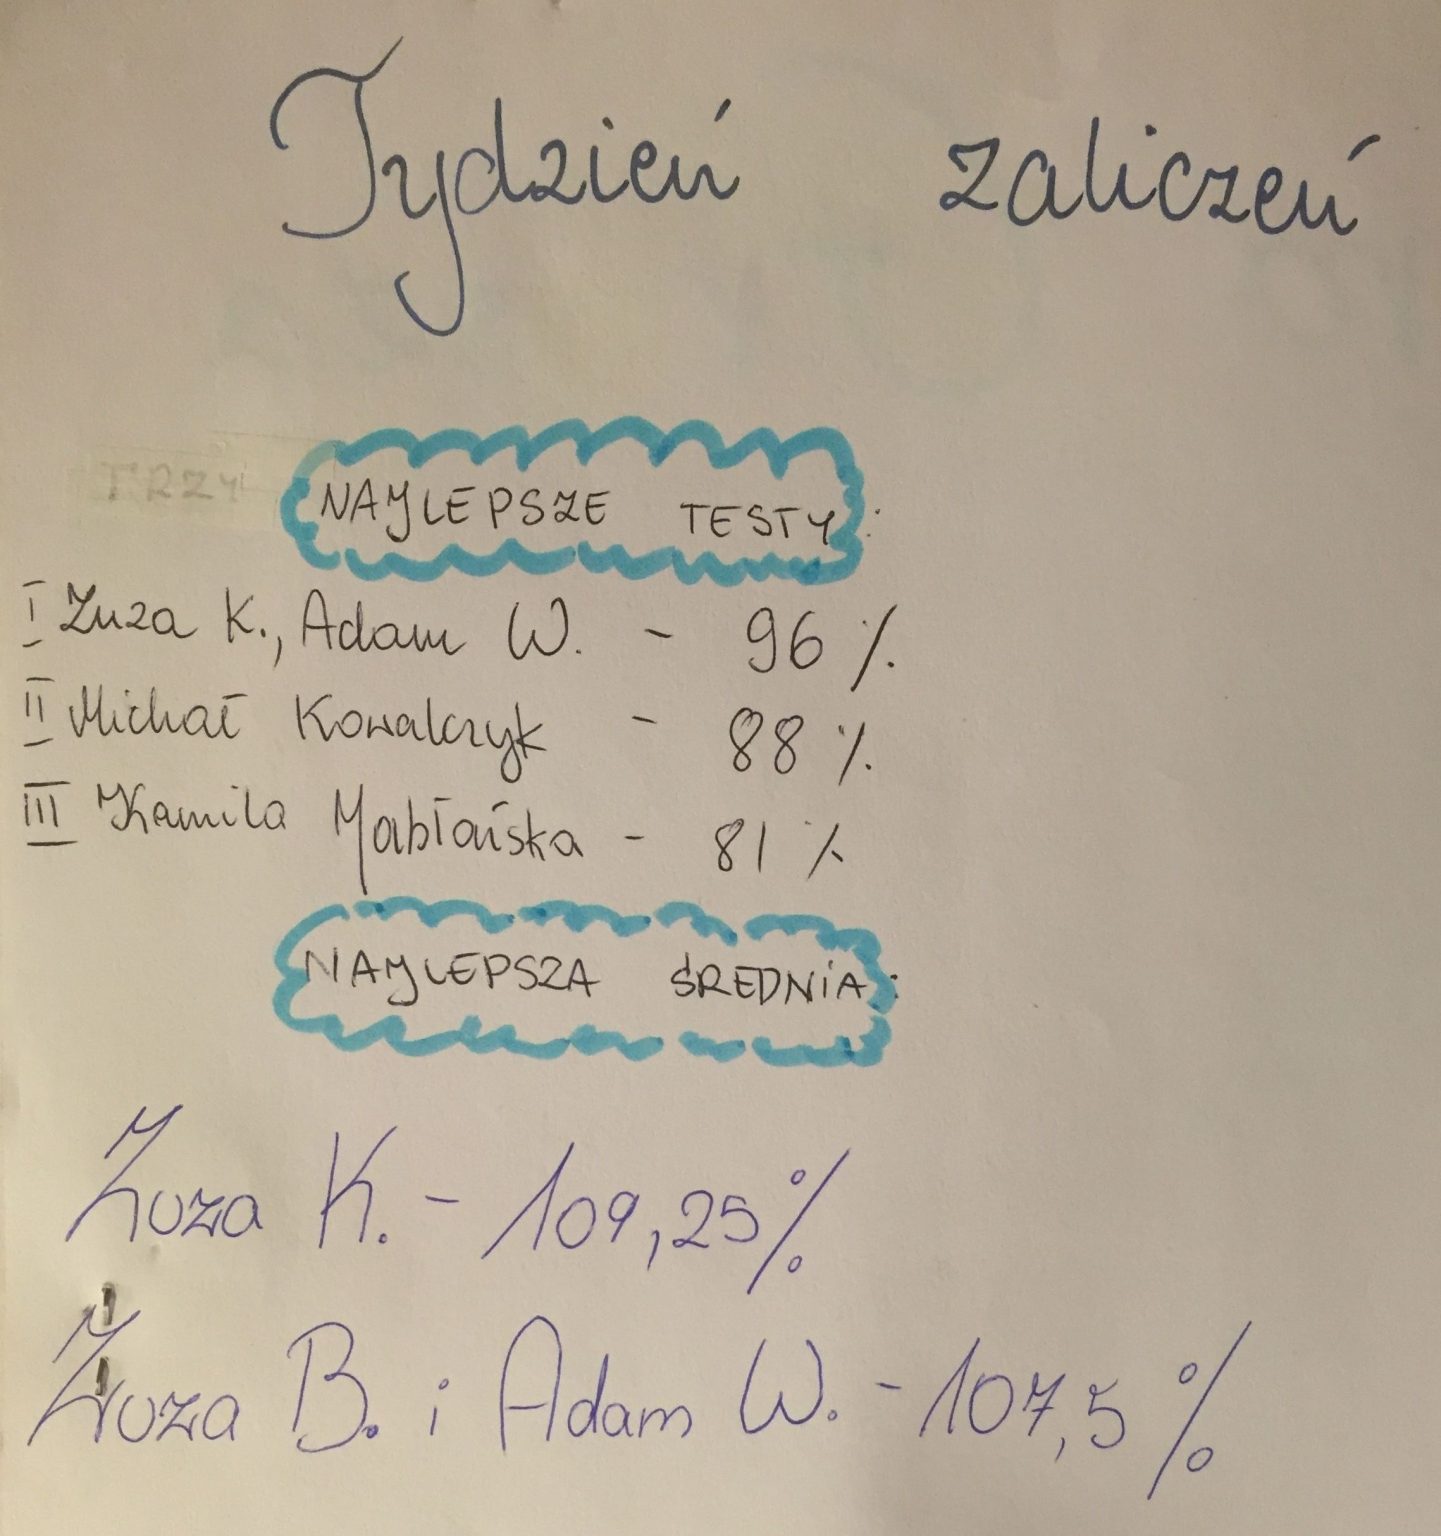 Tydzień zaliczeń
TRZY NAJLEPSZE TESTY:
I Zuza K., Adam W. - 96 %
II Michał Kowalczyk - 88 %
III Kamila - 81 %
NAJLEPSZA ŚREDNIA:
Zuza K. - 109,25%
Zuza B. i Adam W. - 107,5%